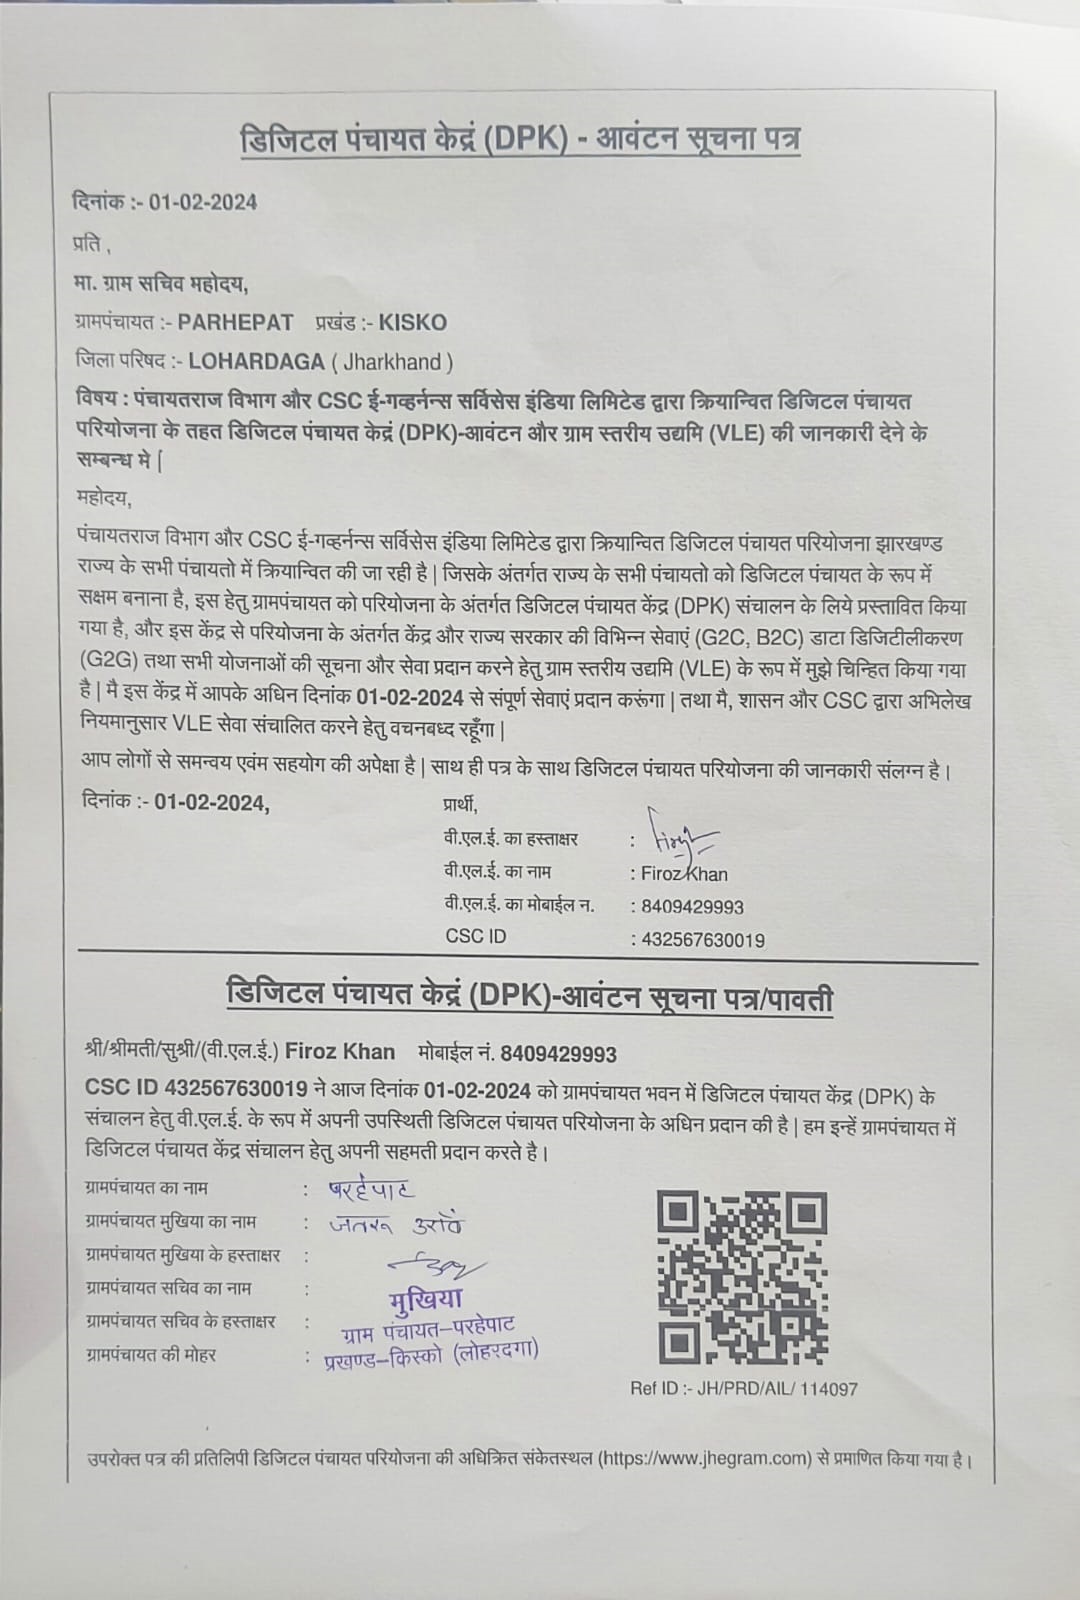 डिजिटल पंचायत केद्रं (DPK) - आवंटन सूचना पत्र
दिनांक :- 01-02-2024
प्रति ,
मा. ग्राम सचिव महोदय,
ग्रामपंचायत :- PARHEPAT प्रखंड :- KISKO
जिला परिषद :- LOHARDAGA ( Jharkhand )
विषय : पंचायतराज विभाग और CSC ई-गव्हर्नन्स सर्विसेस इंडिया लिमिटेड द्वारा क्रियान्वित डिजिटल पंचायत
परियोजना के तहत डिजिटल पंचायत केद्रं (DPK)-आवंटन और ग्राम स्तरीय उद्यमि (VLE) की जानकारी देने के
सम्बन्ध मे |
महोदय,
पंचायतराज विभाग और CSC ई-गव्हर्नन्स सर्विसेस इंडिया लिमिटेड द्वारा क्रियान्वित डिजिटल पंचायत परियोजना झारखण्ड
राज्य के सभी पंचायतो में क्रियान्वित की जा रही है | जिसके अंतर्गत राज्य के सभी पंचायतो को डिजिटल पंचायत के रूप में
सक्षम बनाना है, इस हेतु ग्रामपंचायत को परियोजना के अंतर्गत डिजिटल पंचायत केंद्र (DPK) संचालन के लिये प्रस्तावित किया
गया है, और इस केंद्र से परियोजना के अंतर्गत केंद्र और राज्य सरकार की विभिन्न सेवाएं (G2C, B2C) डाटा डिजिटीलीकरण
(G2G) तथा सभी योजनाओं की सूचना और सेवा प्रदान करने हेतु ग्राम स्तरीय उद्यमि (VLE) के रूप में मुझे चिन्हित किया गया
है | मै इस केंद्र में आपके अधिन दिनांक 01-02-2024 से संपूर्ण सेवाएं प्रदान करूंगा | तथा मै, शासन और CSC द्वारा अभिलेख
नियमानुसार VLE सेवा संचालित करने हेतु वचनबध्द रहूँगा |
आप लोगों से समन्वय एवंम सहयोग की अपेक्षा है | साथ ही पत्र के साथ डिजिटल पंचायत परियोजना की जानकारी संलग्न है।
दिनांक :- 01-02-2024, प्रार्थी,
वी.एल.ई. का हस्ताक्षर :
वी.एल.ई. का नाम : Firoz Khan
वी.एल.ई. का मोबाईल न. : 8409429993
CSC ID : 432567630019
डिजिटल पंचायत केद्रं (DPK)-आवंटन सूचना पत्र/पावती
श्री/श्रीमती/सुश्री/(वी.एल.ई.) Firoz Khan मोबाईल नं. 8409429993
CSC ID 432567630019 ने आज दिनांक 01-02-2024 को ग्रामपंचायत भवन में डिजिटल पंचायत केंद्र (DPK) के
संचालन हेतु वी.एल.ई. के रूप में अपनी उपस्थिती डिजिटल पंचायत परियोजना के अधिन प्रदान की है | हम इन्हें ग्रामपंचायत में
डिजिटल पंचायत केंद्र संचालन हेतु अपनी सहमती प्रदान करते है।
ग्रामपंचायत का नाम : परहेपाट
ग्रामपंचायत मुखिया का नाम : जतरू उराँव
ग्रामपंचायत मुखिया के हस्ताक्षर :
ग्रामपंचायत सचिव का नाम :
मुखिया
ग्रामपंचायत सचिव के हस्ताक्षर :
ग्राम पंचायत-परहेपाट
ग्रामपंचायत की मोहर :
प्रखण्ड-किस्को (लोहरदगा)
Ref ID :- JH/PRD/AIL/ 114097
उपरोक्त पत्र की प्रतिलिपी डिजिटल पंचायत परियोजना की अधिक्रित संकेतस्थल (https://www.jhegram.com) से प्रमाणित किया गया है।